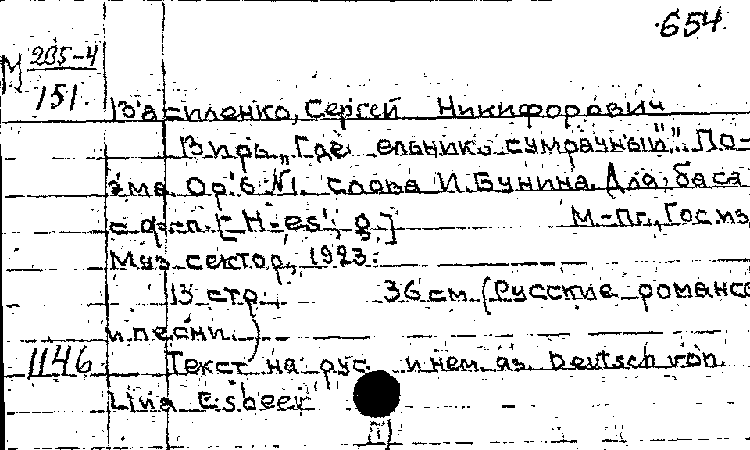 654.
М 205-4
151.
Василенко, Сергей Никифорович
Вирь „Где ельник сумрачный". По-
эма Op. 6 №1. слова И. Бунина. Для баса
с ф-п. [H-es'; g.] М.-Пг., Госиз
Муз. сектор, 1923.
13 стр. 36 см. (Русские романсы
и песни.)
1146 Текст на рус. и нем. яз. Deutsch von
Lina Esbeer